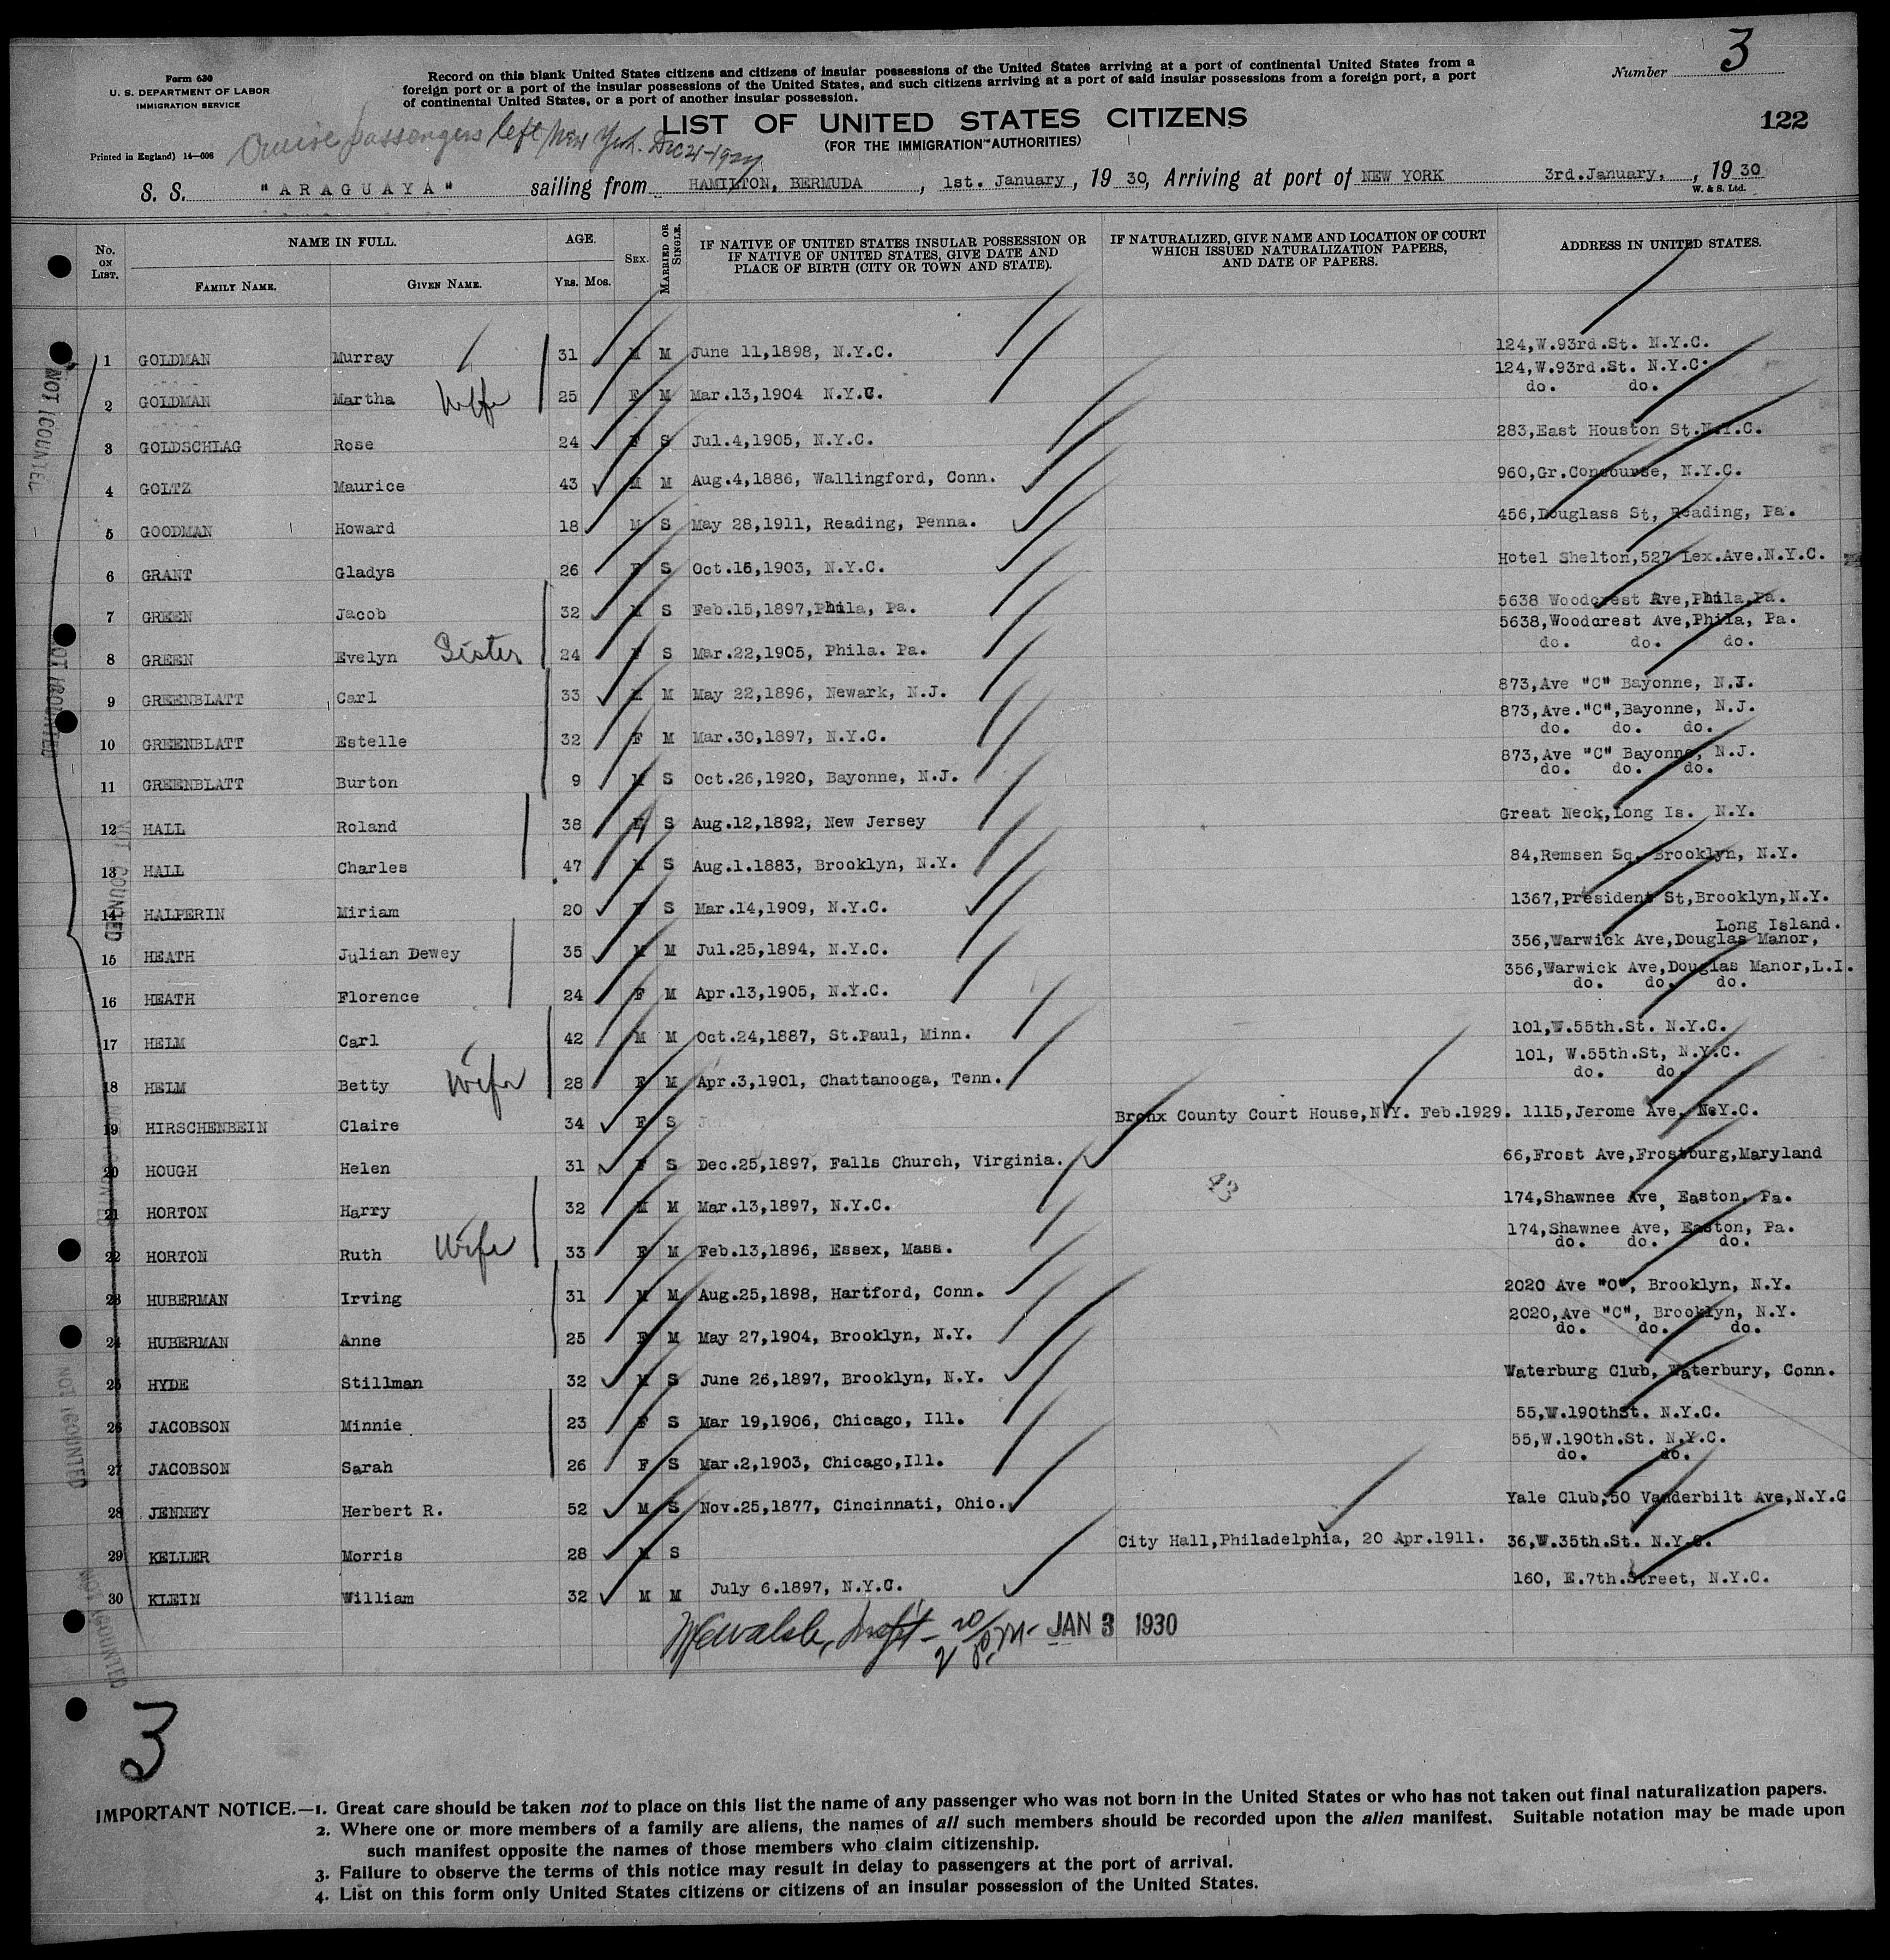 Number 3
Form 630
U. S. DEPARTMENT OF LABOR
IMMIGRATION SERVICE
Record on this blank United States citizens and citizens of insular possessions of the United States arriving at a port of continental United States from a
foreign port or a port of the insular possessions of the United States, and such citizens arriving at a port of said insular possessions from a foreign port, a port
of continental United States, or a port of another insular possession.
122
LIST OF UNITED STATES CITIZENS
(FOR THE IMMIGRATION AUTHORITIES)
Cruise passengers left New York. Dec 21-1929
Printed in England) 14—608
S. S. "ARAGUAYA" sailing from HAMILTON, BERMUDA, 1st. January, 1930, Arriving at port of NEW YORK 3rd.January, , 1930
W. & S. Ltd.
No. ON LIST. NAME IN FULL. FAMILY NAME. GIVEN NAME. AGE. YRS. MOS. SEX. MARRIED OR SINGLE. IF NATIVE OF UNITED STATES INSULAR POSSESSION OR IF NATIVE OF UNITED STATES, GIVE DATE AND PLACE OF BIRTH (CITY OR TOWN AND STATE). IF NATURALIZED, GIVE NAME AND LOCATION OF COURT WHICH ISSUED NATURALIZATION PAPERS, AND DATE OF PAPERS. ADDRESS IN UNITED STATES.
1 GOLDMAN Murray 31 M M June 11,1898, N.Y.C. 124,W.93rd.St. N.Y.C.
2 GOLDMAN Martha Wife 25 F M Mar.13,1904 N.Y.C. 124,W.93rd.St. N.Y.C. do. do.
3 GOLDSCHLAG Rose 24 F S Jul.4,1905, N.Y.C. 283,East Houston St.N.Y.C.
4 GOLTZ Maurice 43 M M Aug.4,1886, Wallingford, Conn. 960,Gr.Concourse, N.Y.C.
5 GOODMAN Howard 18 M S May 28,1911, Reading, Penna. 456,Douglass St, Reading, Pa.
6 GRANT Gladys 26 F S Oct.16,1903, N.Y.C. Hotel Shelton,527 Lex.Ave.N.Y.C.
7 GREEN Jacob 32 M S Feb.15,1897,Phila, Pa. 5638 Woodcrest Ave,Phila,Pa.
8 GREEN Evelyn Sister 24 F S Mar.22,1905, Phila. Pa. 5638,Woodcrest Ave,Phila, Pa. do. do. do.
9 GREENBLATT Carl 33 M M May 22,1896, Newark, N.J. 873,Ave "C" Bayonne, N.J.
10 GREENBLATT Estelle 32 F M Mar.30,1897, N.Y.C. 873,Ave."C",Bayonne, N.J. do. do. do.
11 GREENBLATT Burton 9 M S Oct.26,1920, Bayonne, N.J. 873,Ave "C" Bayonne, N.J. do. do. do.
12 HALL Roland 38 S Aug.12,1892, New Jersey Great Neck,Long Is. N.Y.
13 HALL Charles 47 M S Aug.1.1883, Brooklyn, N.Y. 84,Remsen Sq. Brooklyn, N.Y.
14 HALPERIN Miriam 20 F S Mar.14,1909, N.Y.C. 1367,President St,Brooklyn,N.Y.
15 HEATH Julian Dewey 35 M M Jul.25,1894, N.Y.C. 356,Warwick Ave,Douglas Manor, Long Island.
16 HEATH Florence 24 F M Apr.13,1905, N.Y.C. 356,Warwick Ave,Douglas Manor,L.I. do. do. do.
17 HELM Carl 42 M M Oct.24,1887, St.Paul, Minn. 101,W.55th.St. N.Y.C.
18 HELM Betty Wife 28 F M Apr.3,1901, Chattanooga, Tenn. 101, W.55th.St, N.Y.C. do. do.
19 HIRSCHENBEIN Claire 34 F S Bronx County Court House,N.Y. Feb.1929. 1115,Jerome Ave, N.Y.C.
20 HOUGH Helen 31 F S Dec.25,1897, Falls Church, Virginia. 66,Frost Ave,Frostburg,Maryland
43
21 HORTON Harry 32 M M Mar.13,1897, N.Y.C. 174,Shawnee Ave, Easton, Pa.
22 HORTON Ruth Wife 33 F M Feb.13,1896, Essex, Mass. 174,Shawnee Ave, Easton, Pa. do. do. do.
23 HUBERMAN Irving 31 M M Aug.25,1898, Hartford, Conn. 2020 Ave "O", Brooklyn, N.Y.
24 HUBERMAN Anne 25 F M May 27,1904, Brooklyn, N.Y. 2020,Ave "C", Brooklyn, N.Y. do. do. do.
25 HYDE Stillman 32 M S June 26,1897, Brooklyn, N.Y. Waterburg Club, Waterbury, Conn.
26 JACOBSON Minnie 23 F S Mar 19,1906, Chicago, Ill. 55,W.190thSt. N.Y.C.
27 JACOBSON Sarah 26 F S Mar.2,1903, Chicago,Ill. 55,W.190th.St. N.Y.C. do. do.
28 JENNEY Herbert R. 52 M S Nov.25,1877, Cincinnati, Ohio. Yale Club,50 Vanderbilt Ave,N.Y.C
29 KELLER Morris 28 M S City Hall,Philadelphia, 20 Apr.1911. 36,W.35th.St. N.Y.C.
30 KLEIN William 32 M M July 6.1897, N.Y.C. 160, E.7th.Street, N.Y.C.
JAN 3 1930
NOT COUNTED
NOT COUNTED
NOT COUNTED
NOT COUNTED
NOT COUNTED
NOT COUNTED
3
IMPORTANT NOTICE.—1. Great care should be taken not to place on this list the name of any passenger who was not born in the United States or who has not taken out final naturalization papers.
2. Where one or more members of a family are aliens, the names of all such members should be recorded upon the alien manifest. Suitable notation may be made upon
such manifest opposite the names of those members who claim citizenship.
3. Failure to observe the terms of this notice may result in delay to passengers at the port of arrival.
4. List on this form only United States citizens or citizens of an insular possession of the United States.